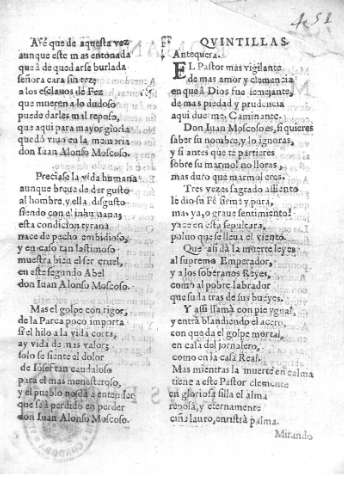 451
Afé que de aquesta vez
aunque este mas entonada
que a de quedar se burlada
señora cara sin tez,
a los esclauos de Fez
que mueren a lo dudoso
puede darles mal reposo,
que aqui para mayor gloria
quedò viuo en la memoria
don Iuan Alonso Moscoso.
Preciase la vida humana
aunque breue de dar gusto
al hombre, y ella disgusto
siendo con el inhumana;
esta condicion tyrana
nace de pecho embidioso,
y en caso tan lastimoso
muestra bien el ser cruel,
en este segundo Abel
don Iuan Alonso Moscoso.
Mas el golpe con rigor,
de la Parca poco importa
si el hilo a la vida corta
ay vida de mas valor;
solo se siente el dolor
de tan caudaloso
para el mas
y el pueblo nos dà a entender
que saldrà perdido en perder
don Iuan Alonso Moscoso.
QVINTILLAS.
Antequera.
EL Pastor mas vigilante
de mas amor y clemencia
en que à Dios fue semejante,
de mas piedad y prudencia
aqui due me, Caminante.
Don Iuan Moscoso es, si quieres
saber su nombre, y lo ignoras,
y si antes que te partieres
sobre su marmol no lloras,
mas duro que marmol eres.
Tres vezes sagrado assiento
le dio su Fè firme y pura,
mas ya, o graue sentimiento!
yaze en esta sepultura,
poluo que se lleua el viento.
Que assi dà la muerte leyes
al supremo Emperador,
y a los soberanos Reyes,
como al pobre labrador
que suda tras de sus bueyes.
Y assi llama con pie ygual,
y entra blandiendo el azero,
con que da el golpe mortal,
en casa del jornalero,
como en la casa Real.
Mas mientras la muerte en calma
tiene a este Pastor clemente
en gloriosa silla el alma
reposa, y eternamente
ciña lauro, palma.
Mirando